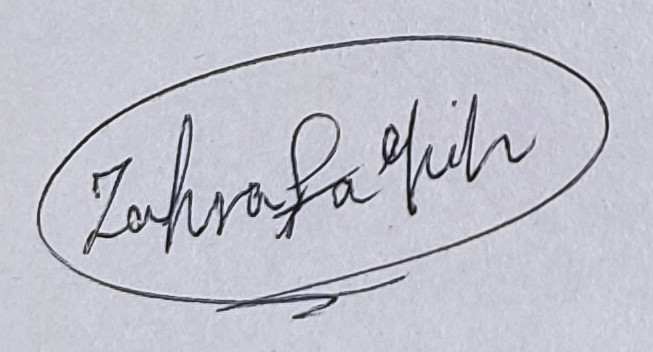 Zahra Faqih